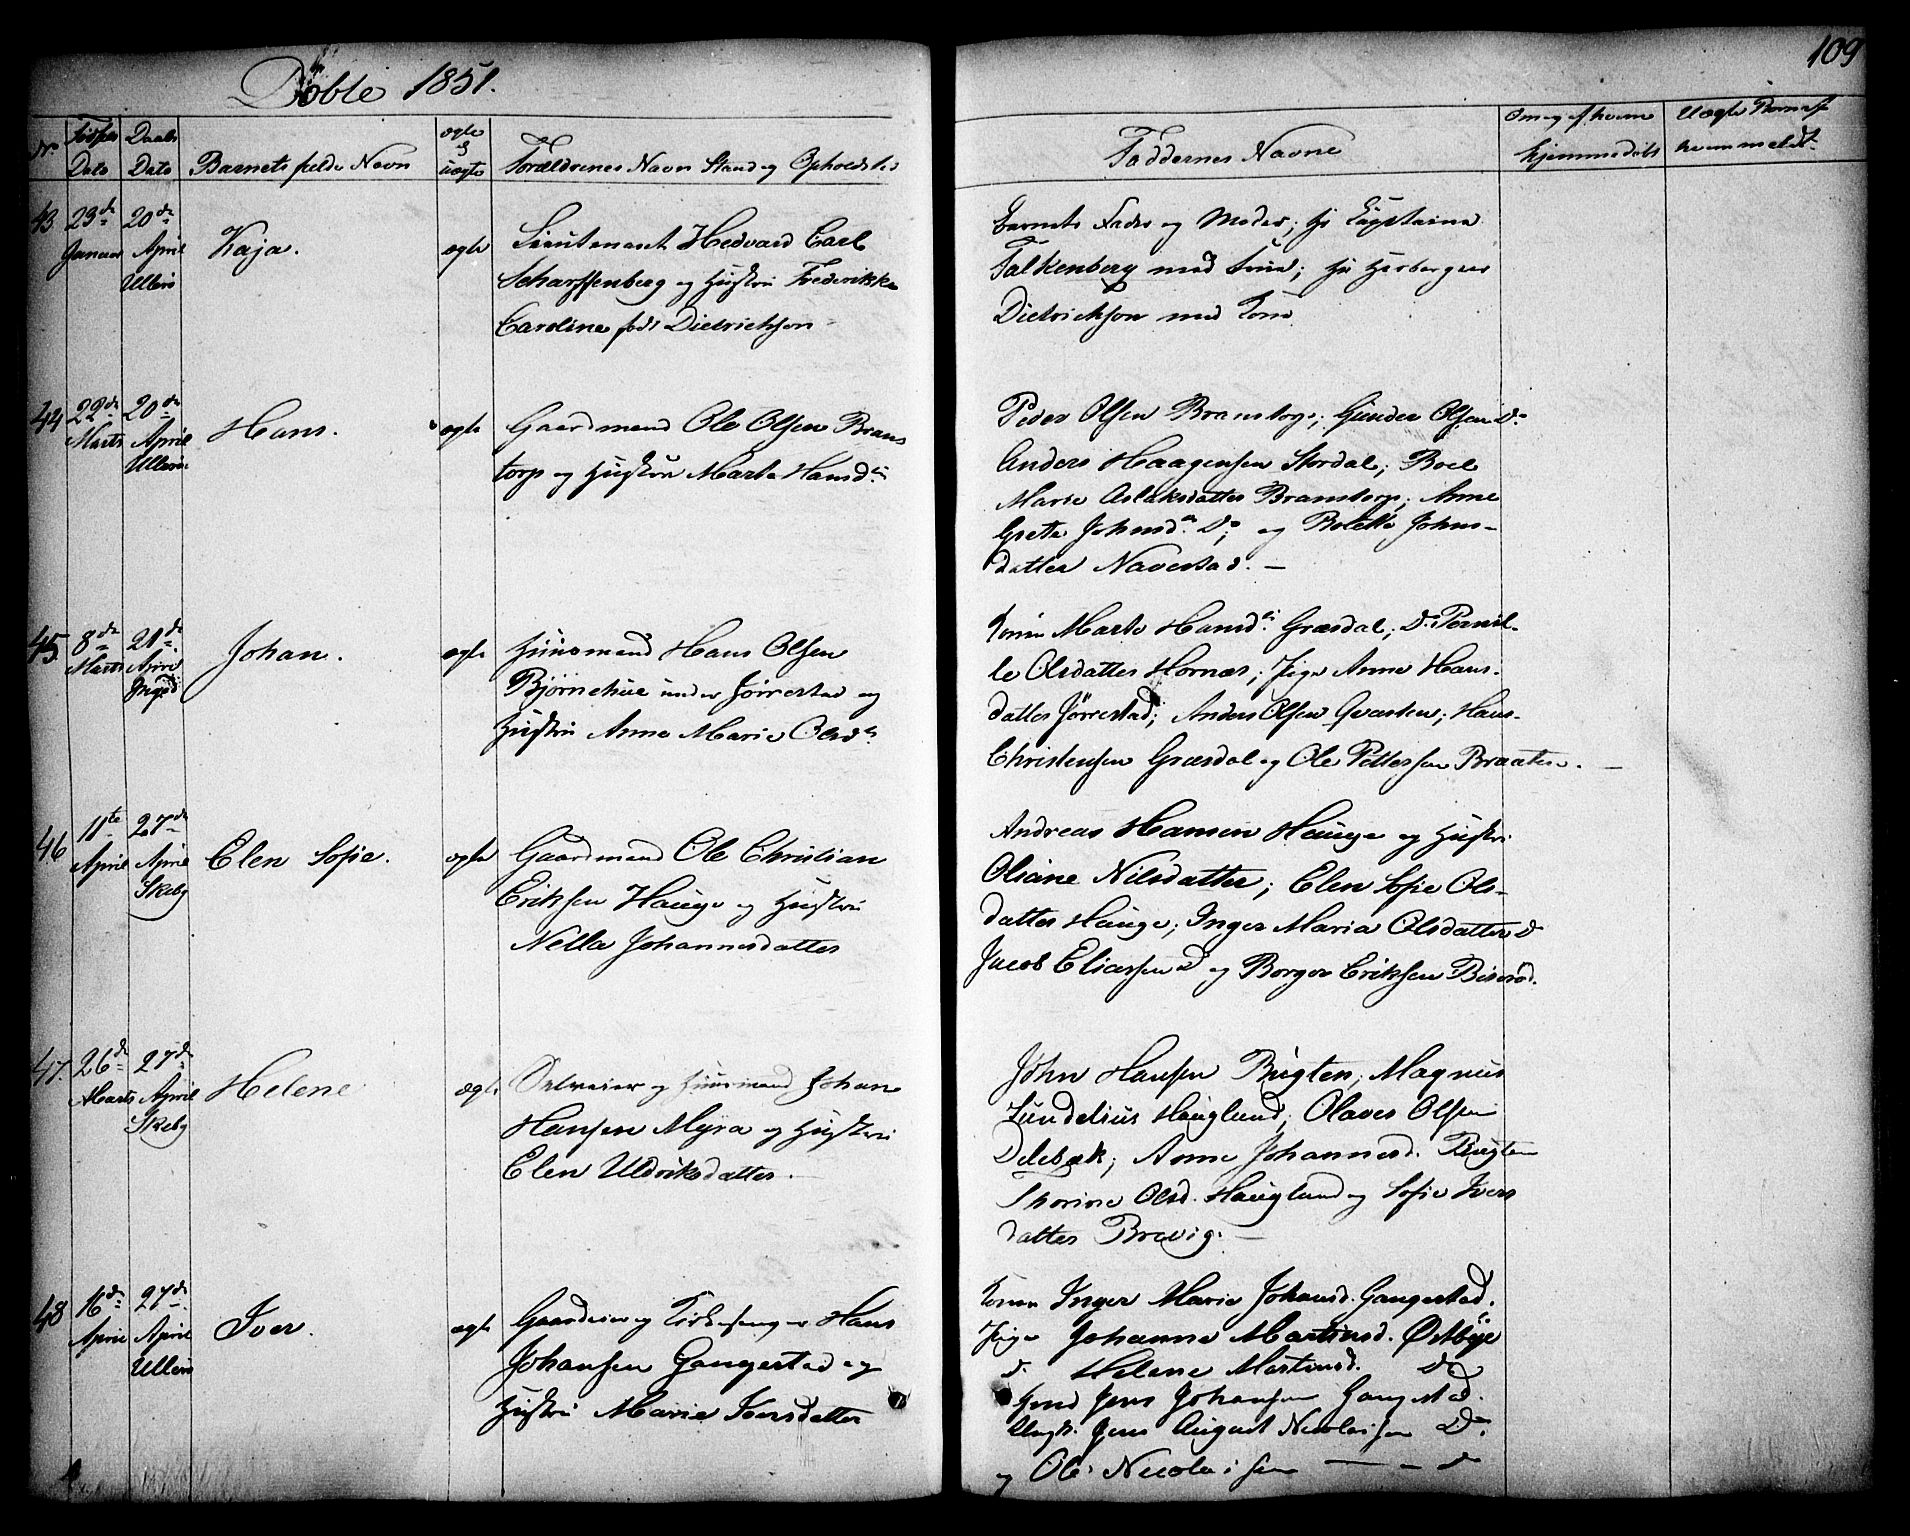 109
Døbte 1851.
Nr. Fødsels Dato Daabs Dato Barnets fulde Navn ægte uægte Forældrenes Navn Stand og Opholdsted
Faddernes Navne
hjemmedøbt
Uægte
43 23de Januar 20de April Ullerø
Kaja.
ægte
Lieutenant Hedvard Carl
Scharffenberg og Hustru Frederikke
Caroline født Dietrichson
Barnets Fader og Moder; Hr Captaine
Falkenberg med Frue; Hr
Dietrichson med Kone
44 22de Marts 20de April Ullerø
Hans.
ægte
Gaardmand Ole Olsen Brans
torp og Hustru Marte Hansdtr
Peder Olsen Branstorp; Gunder Olsen Do
Anders Haagensen Stordal; Boel
Marie Aslaksdatter Branstorp; Anne
Grete Johnsdtr Do; og Bolette Johns-
datter Naverstad. —
45 8de Marts 21de April Ingedl
Johan.
ægte
Huusmand Hans Olsen
Bjørnehue under Jørrestad og
Hustru Anne Marie Olsdtr
Kone Marte Hansdtr Græsdal; Do Pernil-
le Olsdatter Hornæs; Pige Anne Hans-
datter Jørrestad; Anders Olsen Qvasten; Hans
Christensen Græsdal og Ole Pettersen Braaten. —
46 11te April 27de April Skeby
Elen Sofie.
ægte
Gaardmand Ole Christian
Eriksen Hauge og Hustru
Nella Johannesdatter
Andreas Hansen Hauge og Hustru
Oliane Nilsdatter; Elen Sofie Ols-
datter Hauge; Inger Maria Olsdatter D
Jacob Eliassen D og Borger Eriksen Biserød.
47. 26de Marts 27de April Skeby
Helene
ægte
og Huusmand Johan
Hansen Myra og Hustru
Elen Uldriksdatter.
John Hansen Bugten; Magnus
Lundelius Hauglund; Olaves Olsen
Delebæk; Anne Johannesd. Bugten
Thorine Olsd. Hauglund og Sofie Ivers
datter Brevig. —
48 16de April 27de April Ullerø
Iver.
ægte
Gaardeier og Kirkesanger Hans
Johansen Gangestad og
Hustru Marie Iversdatter
Kone Inger Marie Johansd. Gangestad.
Pige Johanne Martinsd. Østbye
D. Helene Martinsd. Do
Gmd Jens Johansen Gangestad.
Ungk. Jens August Nicolaisen Do
og Ole Nicolaisen — — D